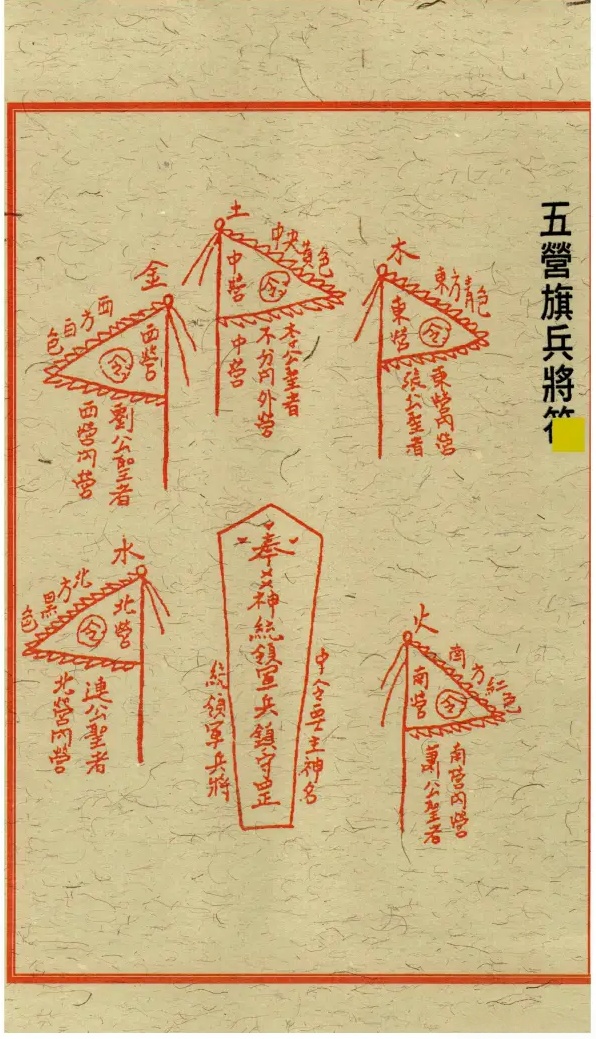 五營旗兵將符
木
東方青色
東營
令
東營內營
張公聖者
土
中央黃色
中營
令
李公聖者
不分內外營
中營
金
西方白色
西營
令
劉公聖者
西營內營
火
南方紅色
南營
令
南營內營
蕭公聖者
中令要主神名
奉
神統領軍兵鎮守罡
統領軍兵將
水
北方黑色
北營
令
連公聖者
北營內營